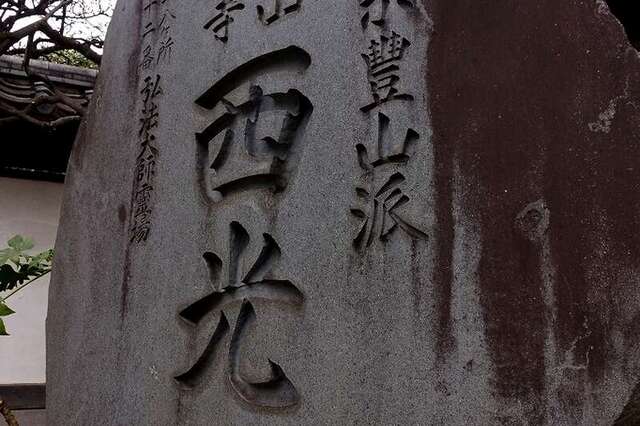 豊山派
山
寺
西光
八ケ所
十二番 弘法大師霊場